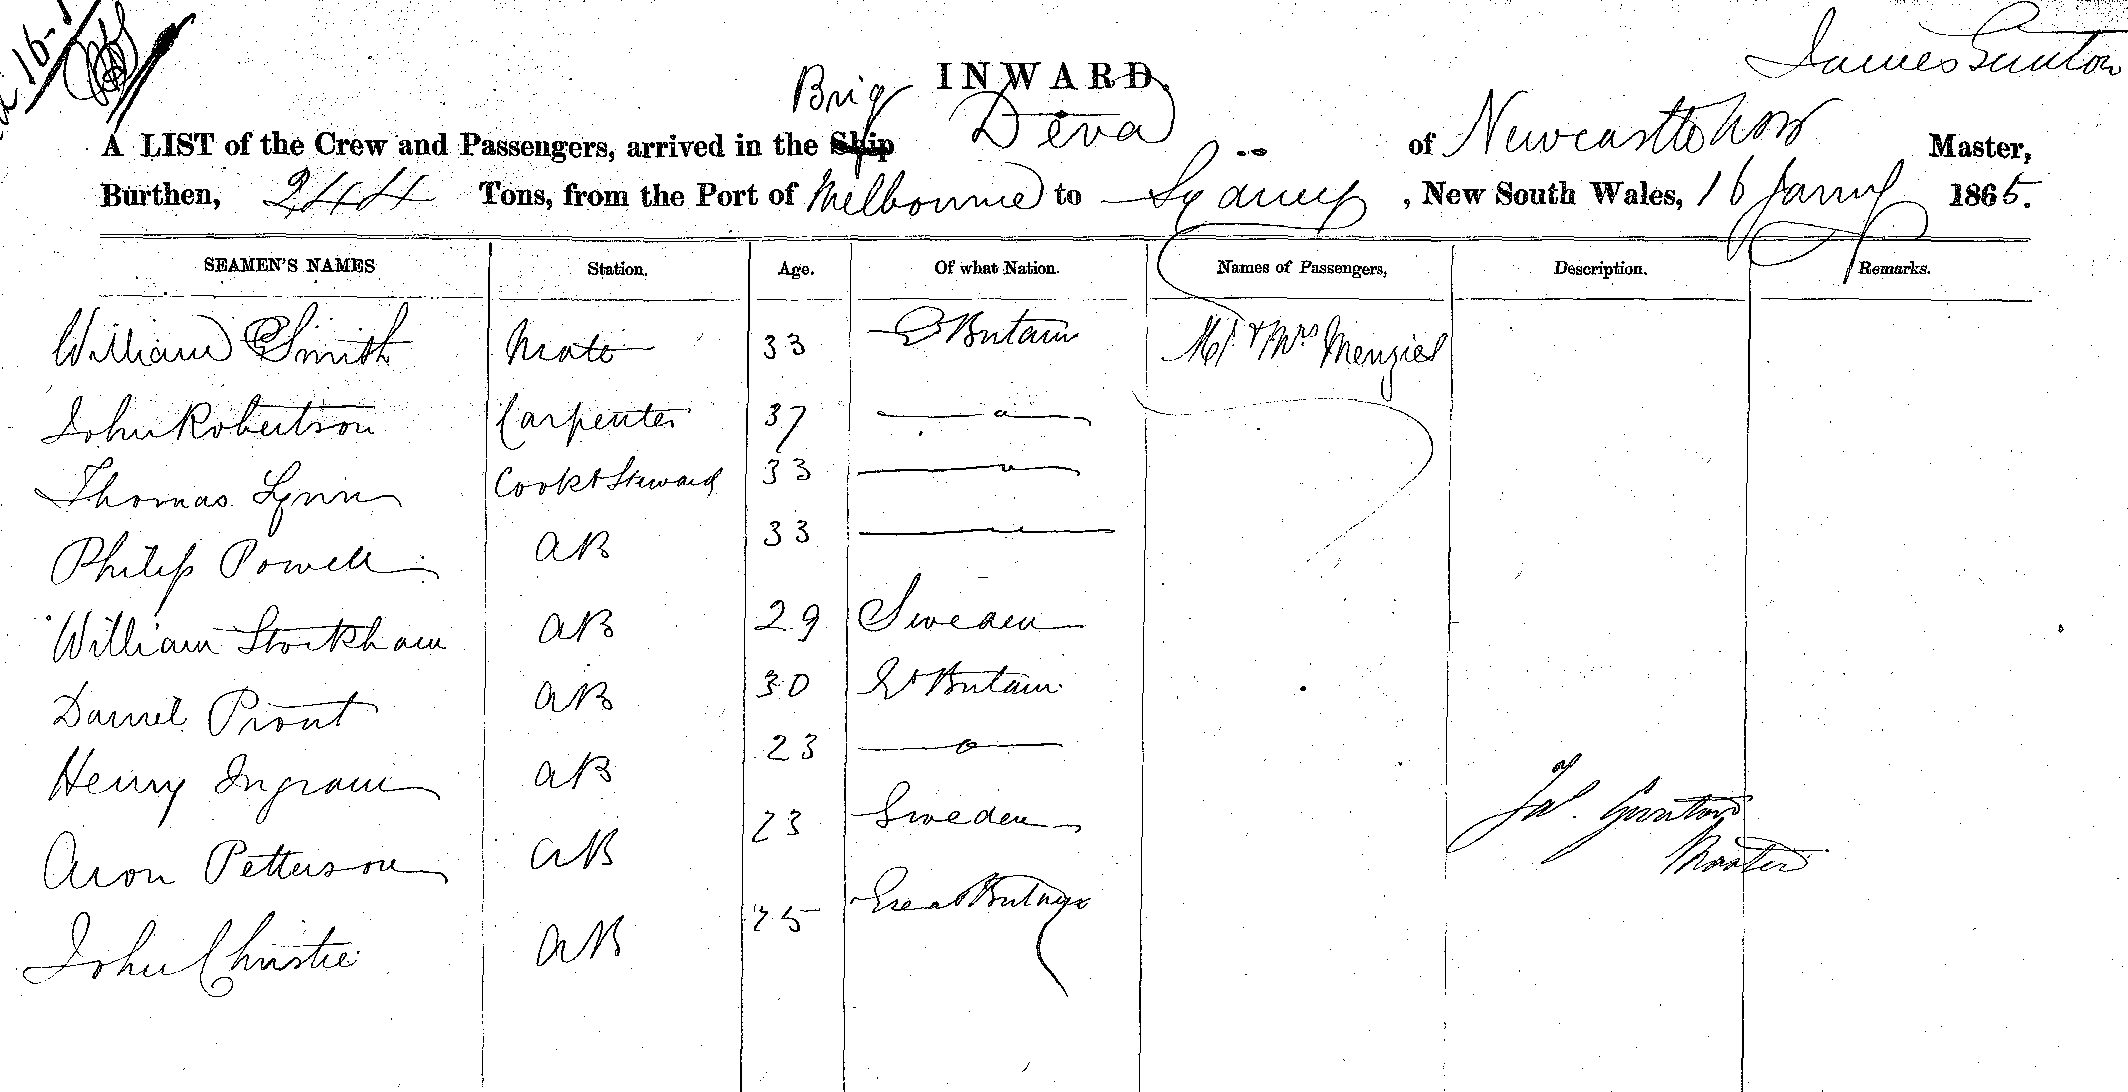 16
James Gunton
INWARD.
Brig Deva
A LIST of the Crew and Passengers, arrived in the Ship of Newcastle NSW Master,
Burthen, 244 Tons, from the Port of Melbourne to Sydney, New South Wales, 16 Jany 1865.
SEAMEN'S NAMES Station. Age. Of what Nation. Names of Passengers, Description. Remarks.
William Smith Mate 33 Gt Britain Mr & Mrs Menzies
John Robertson Carpenter 37
Thomas Lynn Cook & Steward 33
Philip Powell AB 33
William Stockham AB 29 Sweden
Daniel Prout AB 30 Gt Britain
Henry Ingram AB 23
Aron Petterson AB 23 Sweden
John Christie AB 25 Great
Jas. Gunton
Master